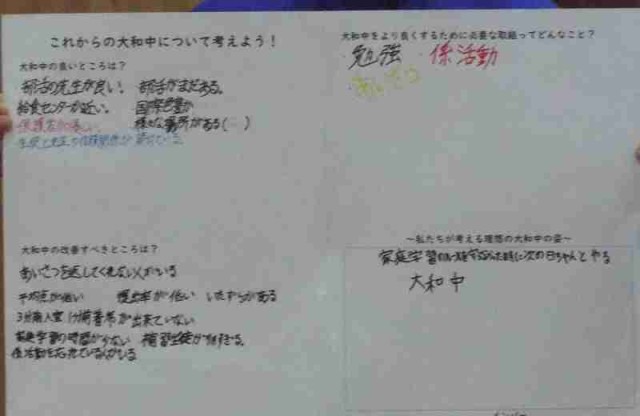 これからの大和中について考えよう！
大和中の良いところは？
部活の先生が良い。 部活がまだある。
給食センターが近い。
様々な場所がある
大和中の改善すべきところは？
あいさつを返してくれない人がいる
平均点が低い 提出率が低い いたずらがある
3分前入室 1分前着席が出来ていない
家庭学習の時間が少ない 補習生徒が
係活動を忘れている人がいる
大和中をより良くするために必要な取組ってどんなこと？
・勉強 ・係活動
・あいさつ
～私たちが考える理想の大和中の姿～
家庭学習 次の日ちゃんとやる
大和中